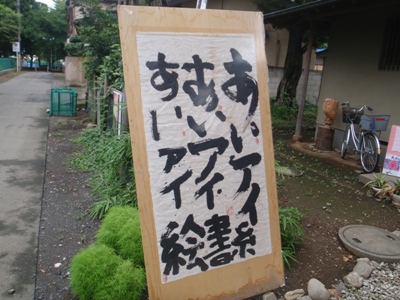 あいアイ糸
あいアイ書
あいアイ絵